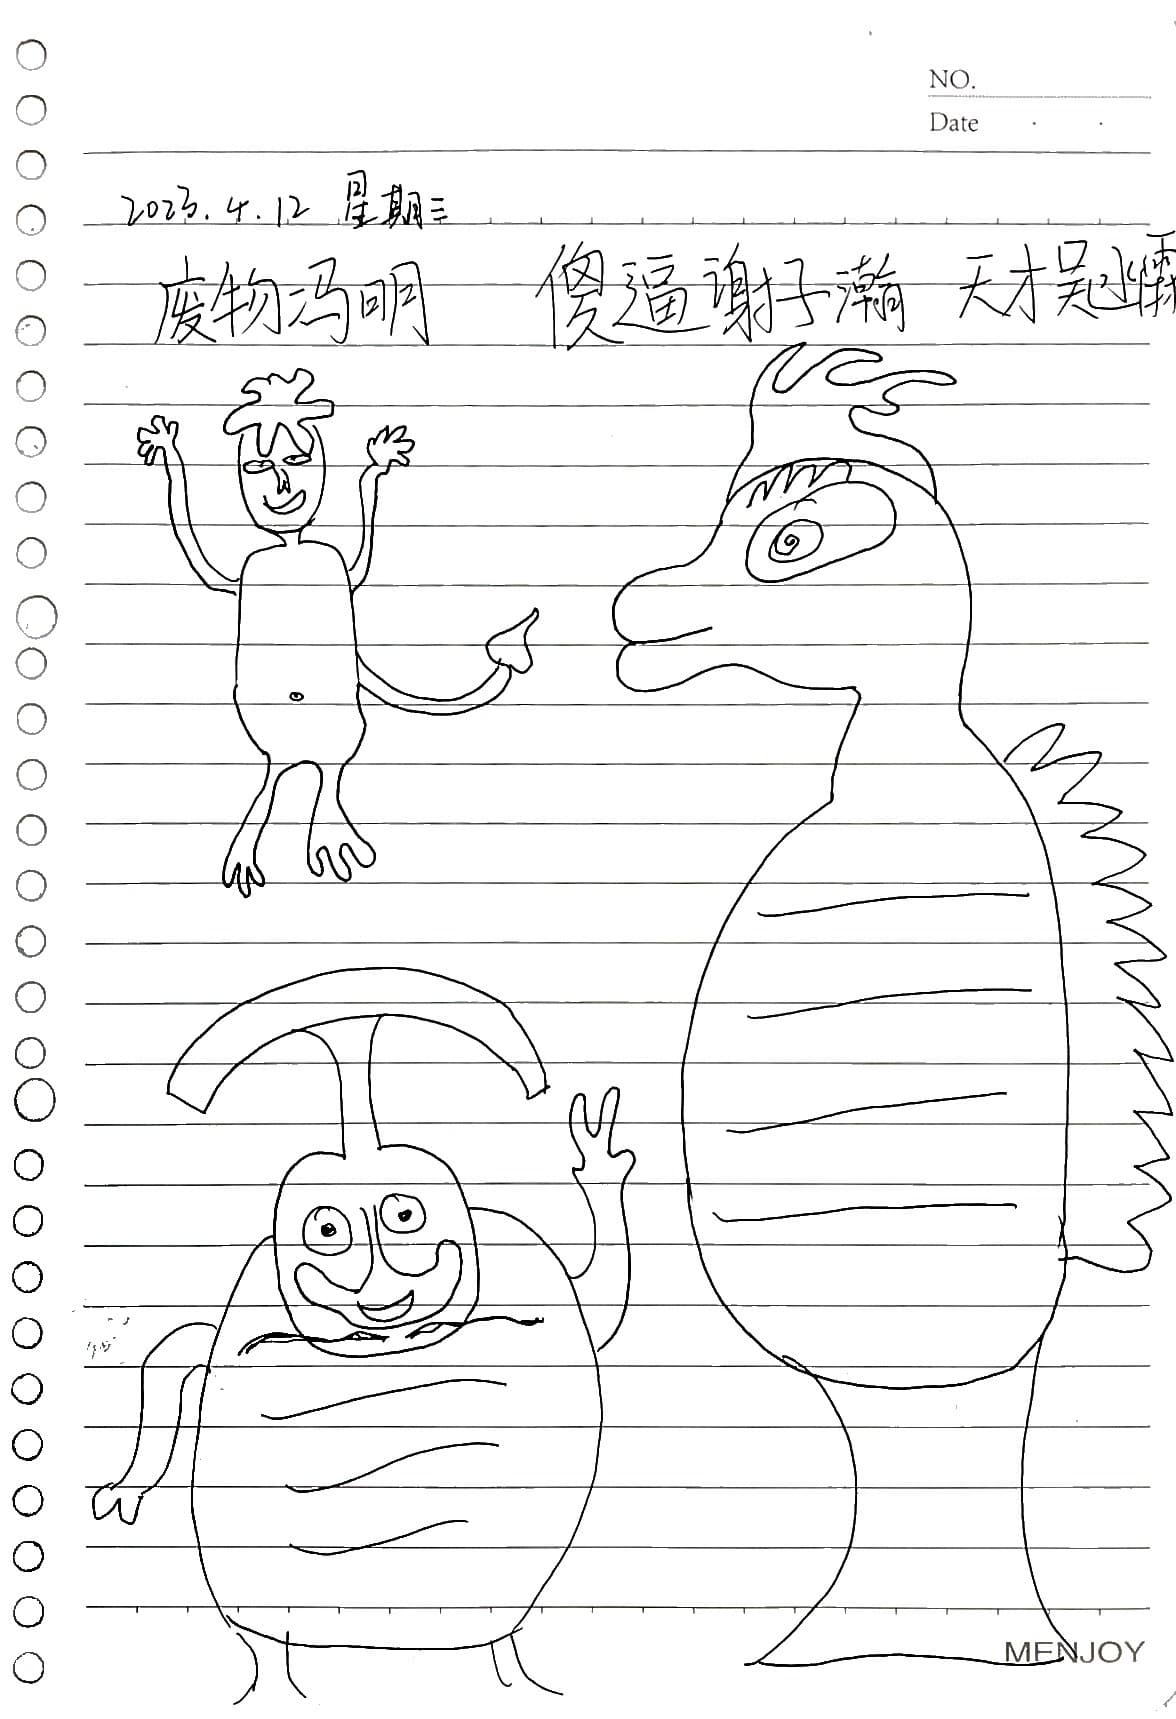 NO.
Date
2023.4.12 星期三
废物冯明 傻逼谢子瀚 天才吴
MENJOY